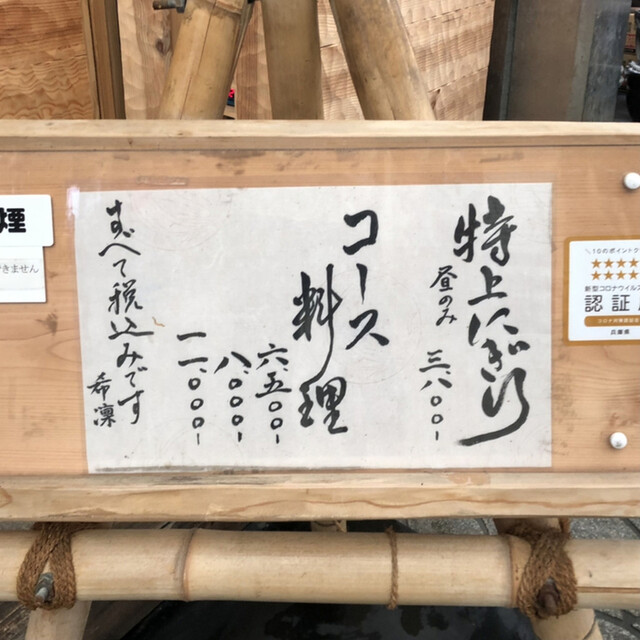 特上にぎり
昼のみ 三、八〇〇-
コース料理
六、五〇〇-
八、〇〇〇-
一一、〇〇〇-
すべて税込みです
希凛
煙
きません
10のポイント
新型コロナウイルス
認証
兵庫県